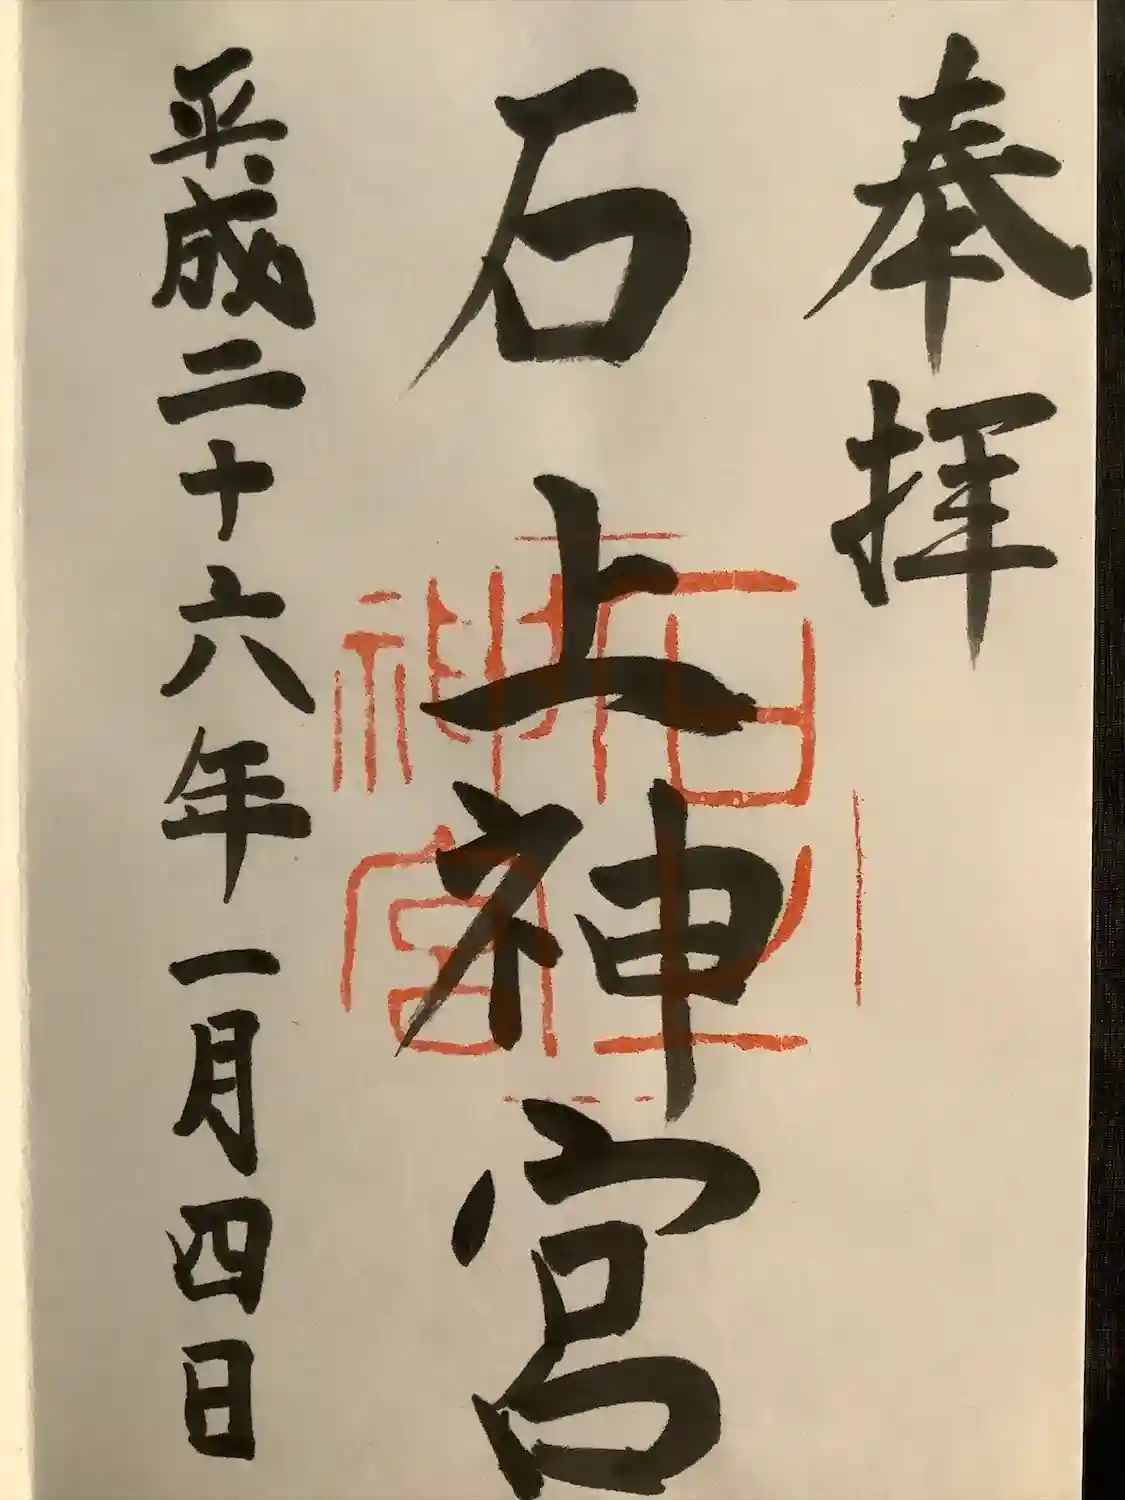 奉拝
石上神宮
石上神宮
平成二十六年一月四日